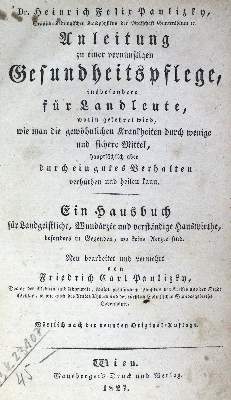 Dr. Heinrich Felix Paulizky,
Anleitung
zu einer vernünftigen
Gesundheitspflege,
insbesondere
für Landleute,
worin gelehret wird,
wie man die gewöhnlichen Krankheiten durch wenige
und sichere Mittel,
hauptsächlich aber
durch ein gutes Verhalten
verhüthen und heilen kann.
Ein Hausbuch
für Landgeistliche, Wundärzte und verständige Hauswirthe,
besonders in Gegenden, wo keine Aerzte sind.
Neu bearbeitet und vermehrt
von
Friedrich Carl Paulizky,
Wörtlich nach der neunten Original-Auflage.
Wien.
Mausberger's Druck und Verlag.
1827.